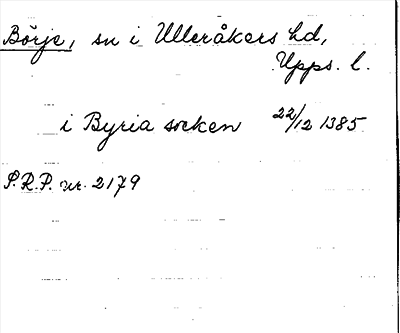 Börje, sn i Ulleråkers hd,
Upps. l.
i Byria socken 22/12 1385
S.R.P. nr. 2179